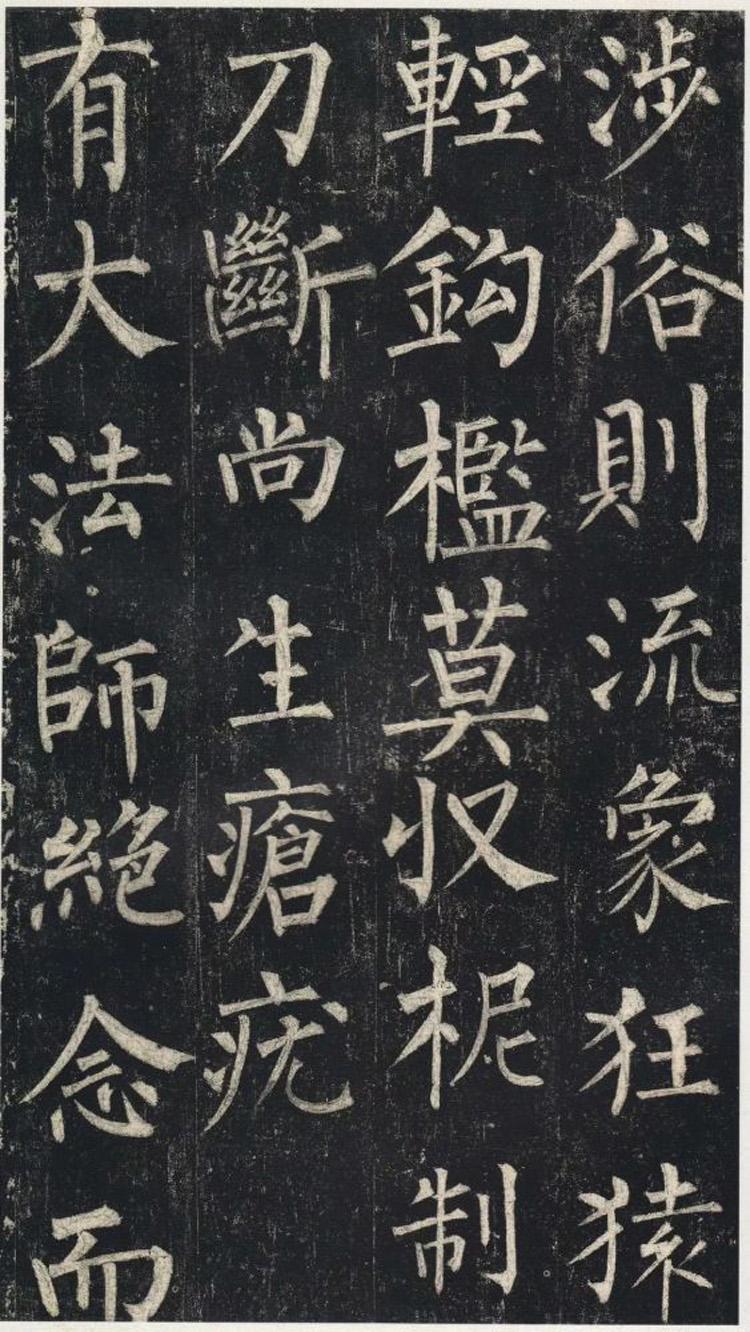 涉俗則流象狂猿
輕鈎檻莫収柅制
刀斷尚生瘡疣
有大法師絕念而